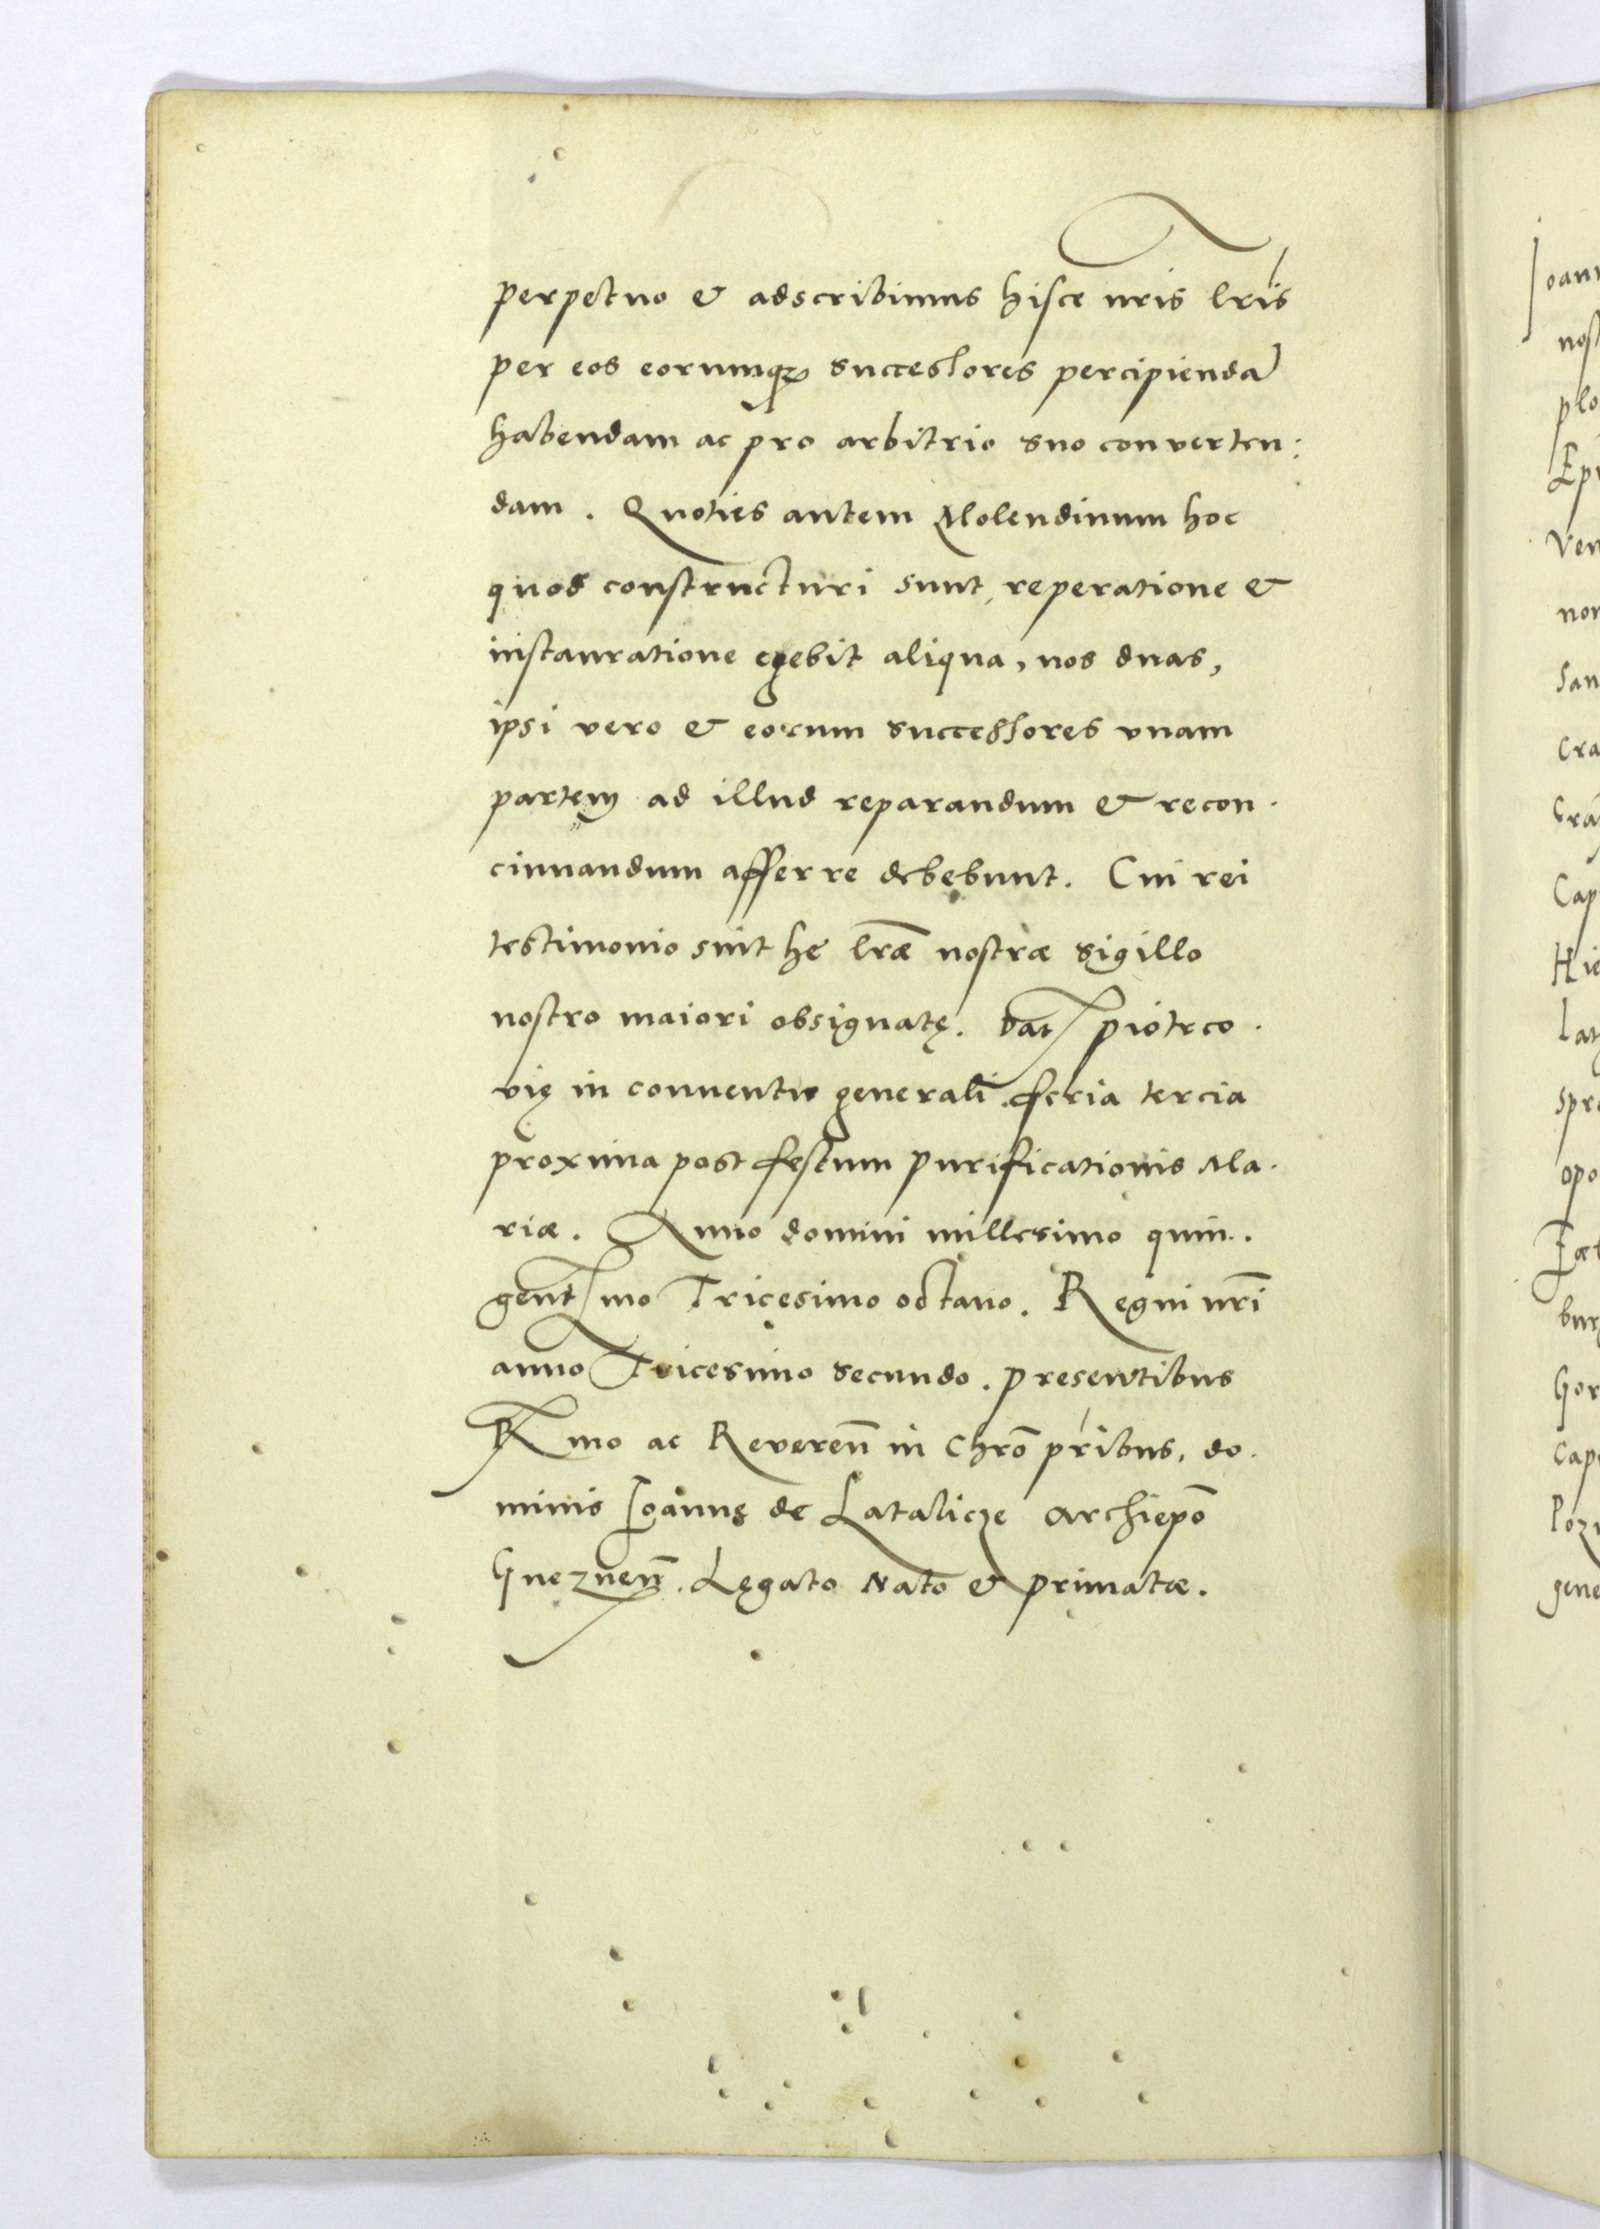 perpetuo & adscribimus hisce nr̄is lr̄is
per eos eorumqꝫ successores percipienda
habendam ac pro arbitrio suo converten:
dam. Quoties autem Molendinum hoc
quod constructuri sunt, reperatione &
instauratione egebit aliqua, nos duas,
ipsi vero & eorum successores vnam
partem ad illud reparandum & recon.
cinnandum afferre debebunt. Cui rei
testimonio sint hę lr̄æ nostræ sigillo
nostro maiori obsignatę. Dat Piotrco.
vię in conventu generali. feria tercia
proxima post festum Purificationis Ma.
riæ. Anno domini millesimo quin.
gentmo Tricęsimo octavo. Regni nr̄i
anno Tricesimo secundo. Presentibus
Rmo ac Reveren̄ in Chrō pribus, do.
minis Joanne de Latalicze Archiepō
Gneznen̄. Lęgato Nato & primatæ.
Joan
nost
plo
Ep
Ven
non
San
Cra
Cra
Cap
Hie
lat
spr
opo
bur
Gor
Cap
Poz
gene